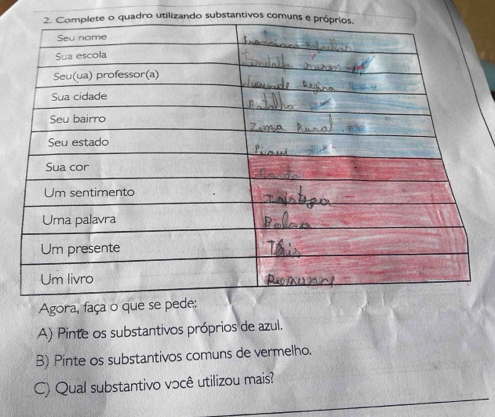 2. Complete o quadro utilizando substantivos comuns e próprios.
Seu nome
Sua escola
Seu(ua) professor(a) Regina
Sua cidade Batalha
Seu bairro Zona Rural
Seu estado Piauí
Sua cor
Um sentimento
Uma palavra
Um presente
Um livro
Agora, faça o que se pede:
A) Pinte os substantivos próprios de azul.
B) Pinte os substantivos comuns de vermelho.
C) Qual substantivo você utilizou mais?